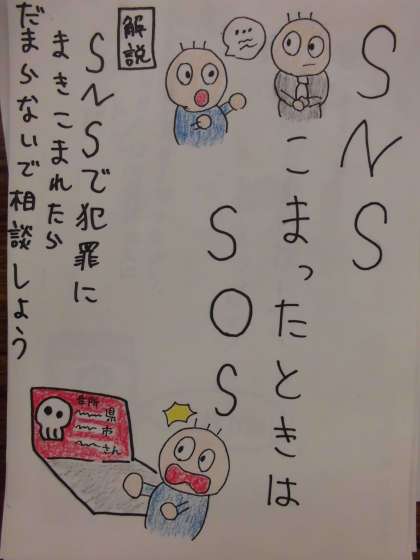 SNS
こまったときは
SOS
…
解説
SNSで犯罪に
まきこまれたら
だまらないで相談しよう
住所
県
市
さん